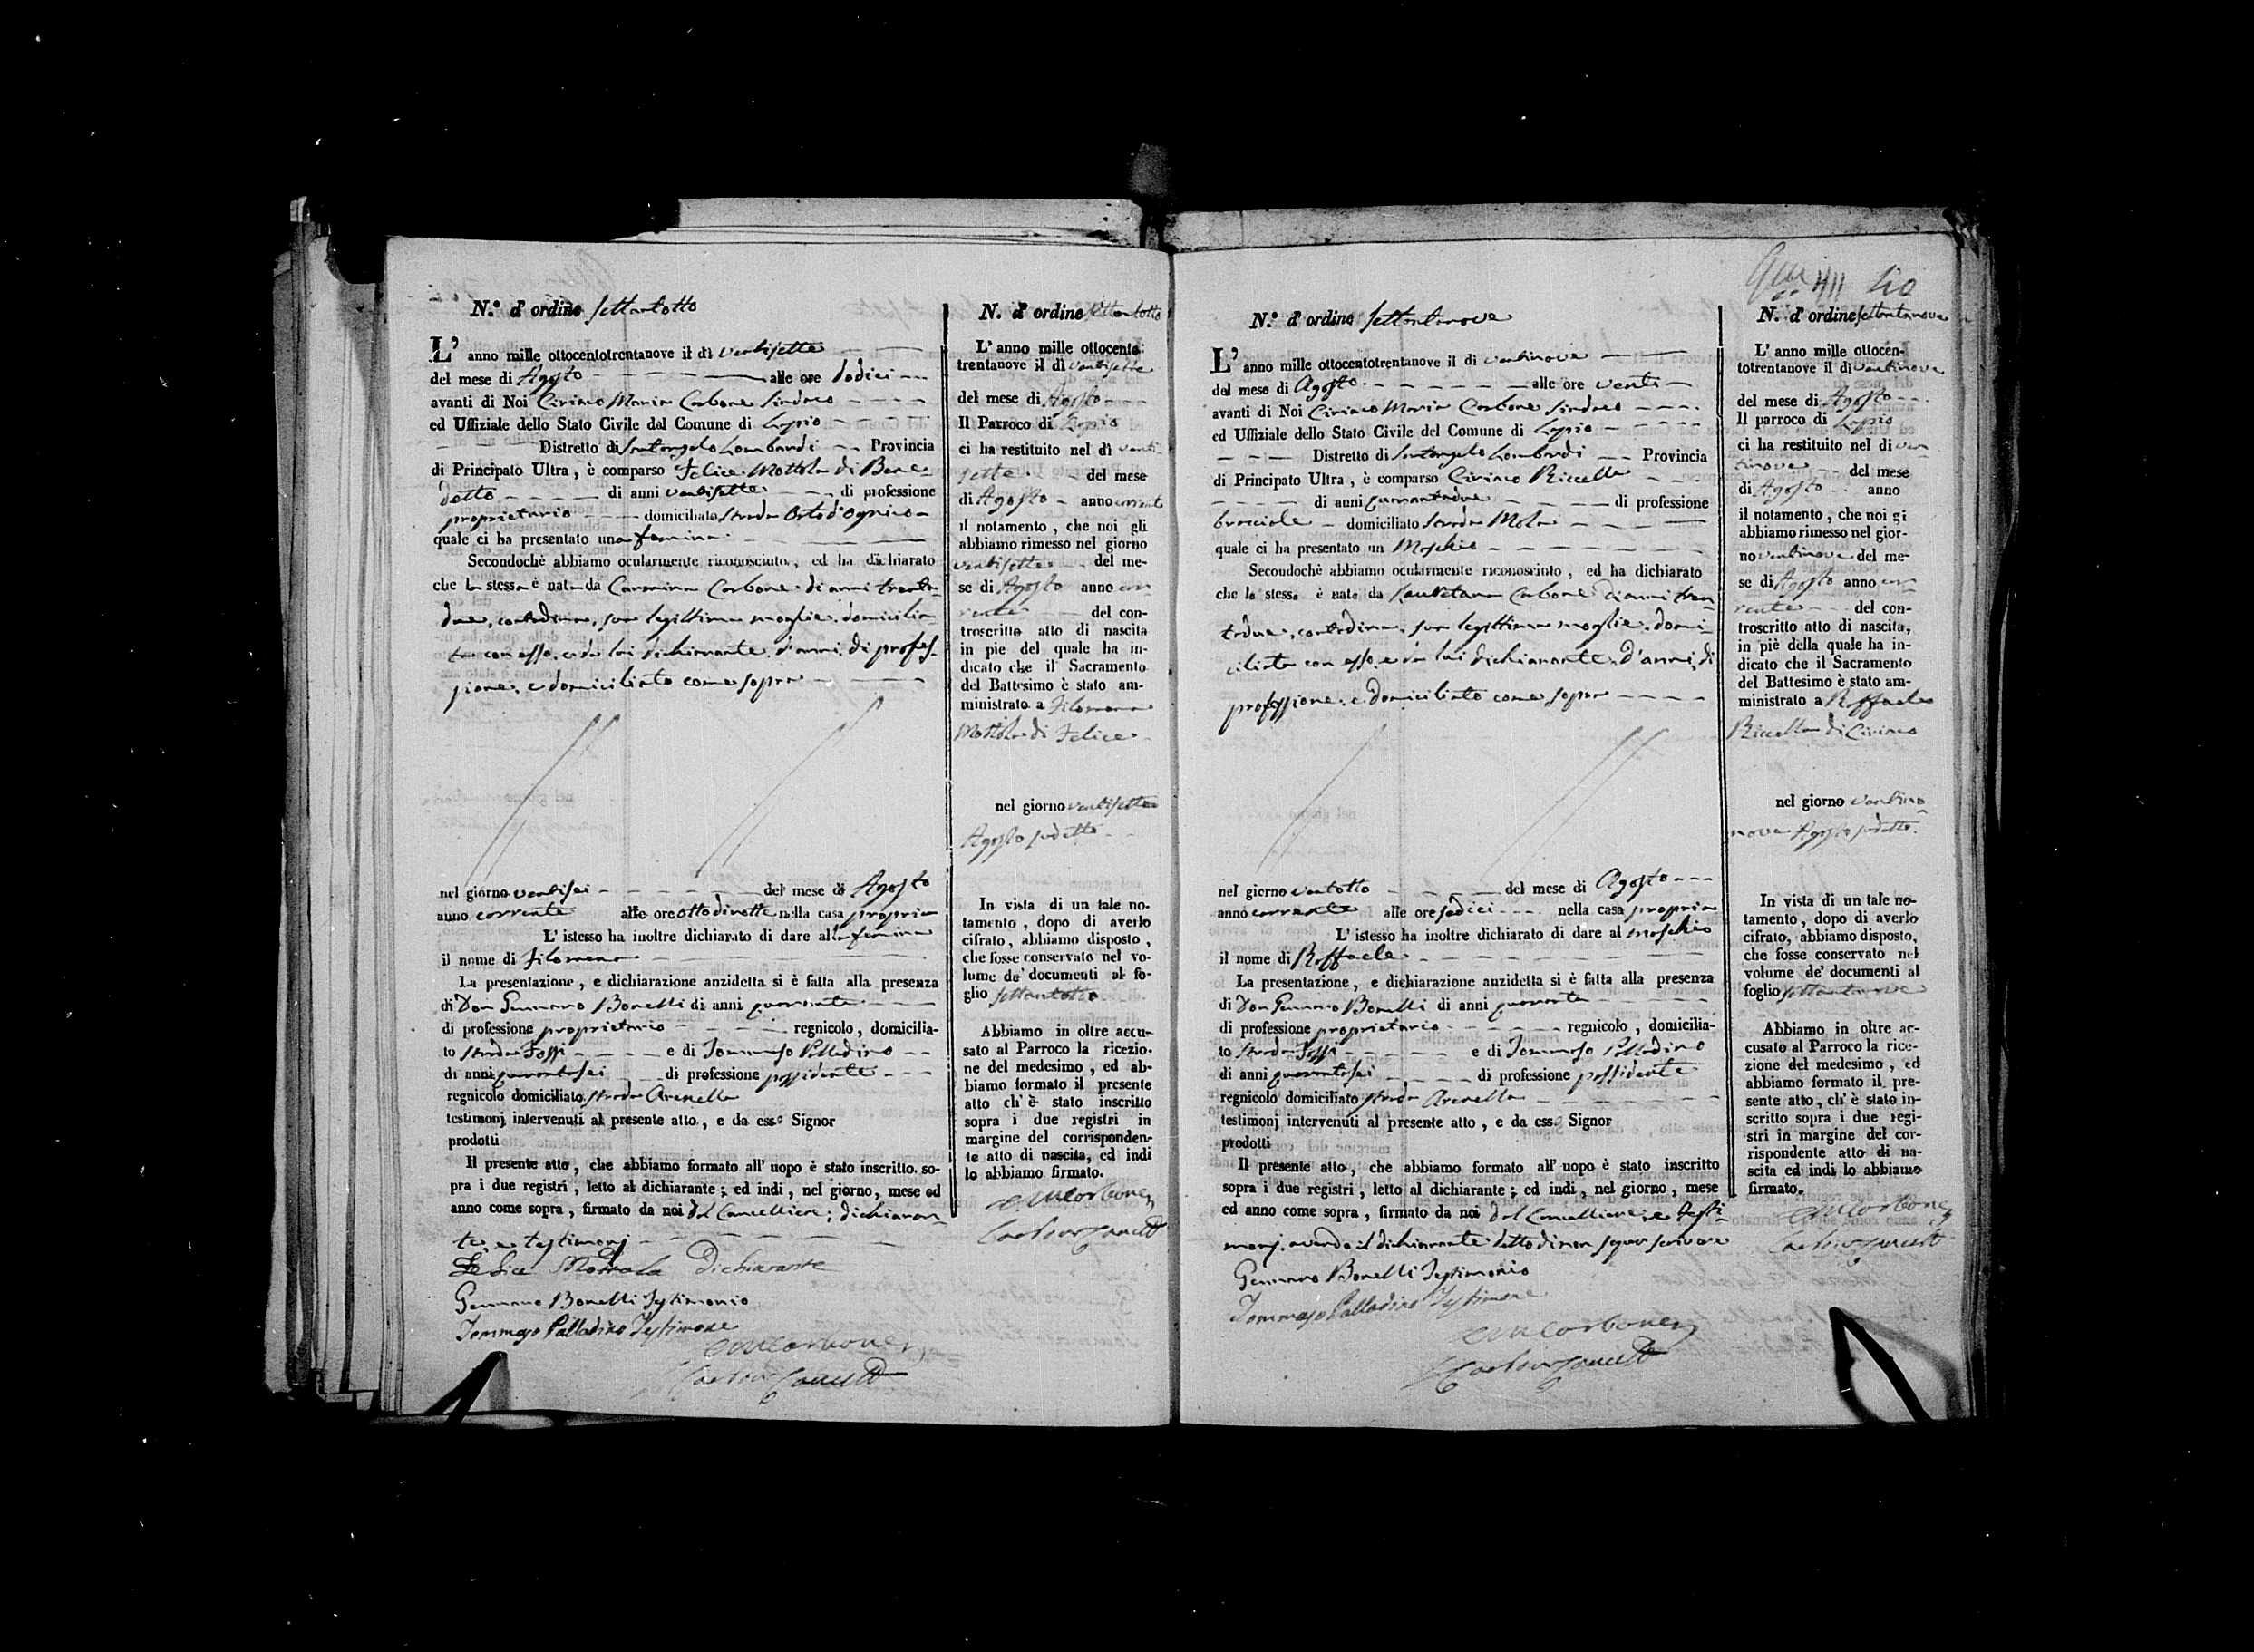 N.° d'ordine settantotto
L' anno mille ottocentotrentanove il dì ventisette
del mese di Agosto alle ore dodici
avanti di Noi Ciriaco Maria Carbone Sindaco
ed Uffiziale dello Stato Civile del Comune di Lapio
Distretto di Santangelo Lombardi Provincia
di Principato Ultra, è comparso Felice Mottola di Bene-
detto di anni ventisette di professione
proprietario domiciliato strada Orto d'
quale ci ha presentato una femina
Secondochè abbiamo ocularmente riconosciuto, ed ha dichiarato
che la stessa è nata da Carmina Carbone di anni trenta-
due, contadina, sua legittima moglie, domicilia-
ta con esso, e da lui dichiarante, d'anni, di profes-
sione, e domiciliato come sopra
nel giorno ventisei del mese di Agosto
anno corrente alle ore otto di notte nella casa propria
L' istesso ha inoltre dichiarato di dare alla femina
il nome di Filomena
La presentazione, e dichiarazione anzidetta si è fatta alla presenza
di Don Gennaro Bonelli di anni quaranta
di professione proprietario regnicolo, domicilia-
to strada Fossi e di Tommaso Palladino
di anni quarantasei di professione possidente
regnicolo domiciliato strada Arenella
testimonj intervenuti al presente atto, e da esso Signor
prodotti
Il presente atto, che abbiamo formato all' uopo è stato inscritto so-
pra i due registri, letto al dichiarante; ed indi, nel giorno, mese ed
anno come sopra, firmato da noi dal Cancelliere, dichiaran-
te, e testimonj
Felice Mottola Dichiarante
Gennaro Bonelli Testimonio
Tommaso Palladino Testimone
CMCarbone
N. d' ordine settantotto
L' anno mille ottocento
trentanove il dì ventisette
del mese di Agosto
Il Parroco di Lapio
ci ha restituito nel dì venti
sette del mese
di Agosto anno corrente
il notamento, che noi gli
abbiamo rimesso nel giorno
ventisette del me-
se di Agosto anno cor-
rente del con-
troscritto atto di nascita
in pie del quale ha in-
dicato che il Sacramento
del Battesimo è stato am-
ministrato a Filomena
Mottola di Felice
nel giorno ventisette
Agosto sudetto
In vista di un tale no-
tamento, dopo di averlo
cifrato, abbiamo disposto,
che fosse conservato nel vo-
lume de' documenti al fo-
glio settantotto
Abbiamo in oltre accu-
sato al Parroco la ricezio-
ne del medesimo, ed ab-
biamo formato il presente
atto ch' è stato inscritto
sopra i due registri in
margine del corrisponden-
te atto di nascita, ed indi
lo abbiamo firmato.
CMCarbone
N.° d' ordine settantanove
L' anno mille ottocentotrentanove il dì ventinove
del mese di Agosto alle ore venti
avanti di Noi Ciriaco Maria Carbone Sindaco
ed Uffiziale dello Stato Civile del Comune di Lapio
Distretto di Santangelo Lombardi Provincia
di Principato Ultra, è comparso Ciriaco Riccella
di anni quarantadue di professione
bracciale domiciliato strada Mola
quale ci ha presentato un Maschio
Secondochè abbiamo ocularmente riconosciuto, ed ha dichiarato
che lo stesso è nato da Lauretana Carbone di anni tren-
tadue, contadina, sua legittima moglie, domi-
ciliata con esso, e da lui dichiarante, d'anni, di
professione, e domiciliato come sopra
nel giorno ventotto del mese di Agosto
anno corrente alle ore sedici nella casa propria
L' istesso ha inoltre dichiarato di dare al maschio
il nome di Raffaele
La presentazione, e dichiarazione anzidetta si è fatta alla presenza
di Don Gennaro Bonelli di anni quaranta
di professione proprietario regnicolo, domicilia-
to strada Fossi e di Tommaso Palladino
di anni quarantasei di professione possidente
regnicolo domiciliato strada Arenella
testimonj intervenuti al presente atto, e da esso Signor
prodotti
Il presente atto, che abbiamo formato all' uopo è stato inscritto
sopra i due registri, letto al dichiarante; ed indi, nel giorno, mese
ed anno come sopra, firmato da noi dal Cancelliere, e testi-
monj, avendo il dichiarante detto di non saper scrivere
Gennaro Bonelli Testimonio
Tommaso Palladino Testimone
CMCarbone
40
N. d' ordine settantanove
L' anno mille ottocen-
totrentanove il dì ventinove
del mese di Agosto
Il parroco di Lapio
ci ha restituito nel dì ven
tinove del mese
di Agosto anno
il notamento, che noi gi
abbiamo rimesso nel gior-
no ventinove del me-
se di Agosto anno cor-
rente del con-
troscritto atto di nascita,
in piè della quale ha in-
dicato che il Sacramento
del Battesimo è stato am-
ministrato a Raffaele
Riccella di Ciriaco
nel giorno ventino
nove Agosto sudetto
In vista di un tale no-
tamento, dopo di averlo
cifrato, abbiamo disposto,
che fosse conservato nel
volume de' documenti al
foglio settantanove
Abbiamo in oltre ac-
cusato al Parroco la rice-
zione del medesimo, ed
abbiamo formato il pre-
sente atto, ch' è stato in-
scritto sopra i due regi-
stri in margine del cor-
rispondente atto di na-
scita ed indi lo abbiamo
firmato.
CMCarbone